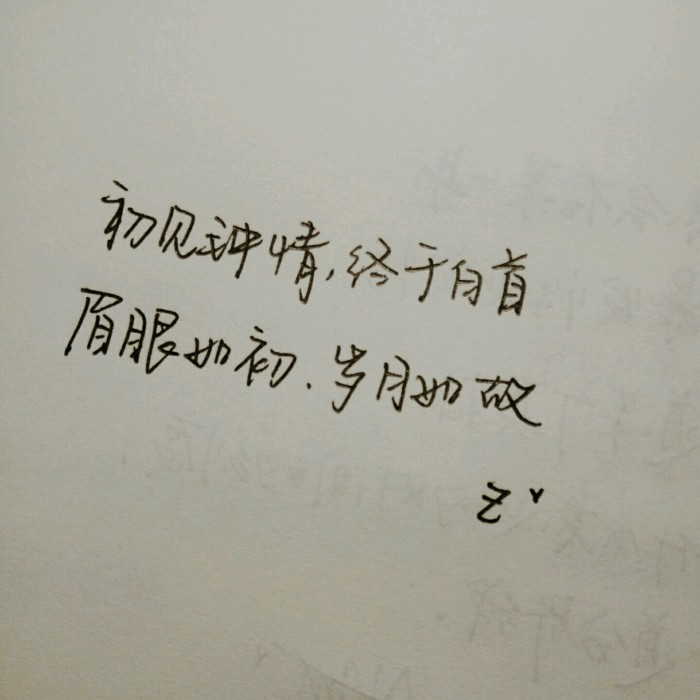 初见钟情,终于白首
眉眼如初.岁月如故
Z